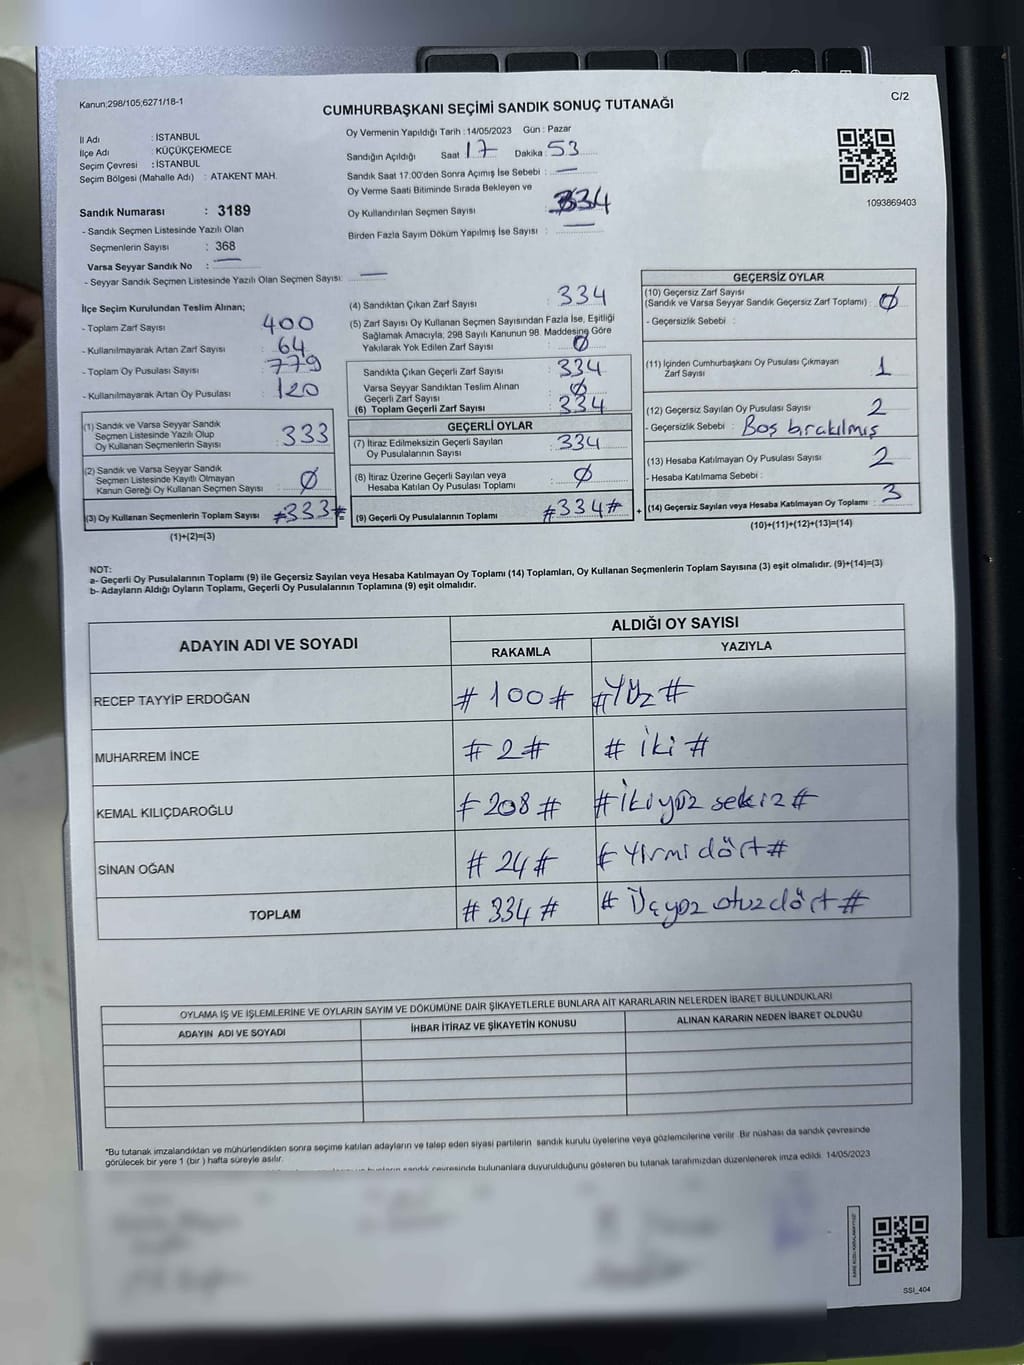 Kanun;298/105,6271/18-1
C/2
CUMHURBAŞKANI SEÇİMİ SANDIK SONUÇ TUTANAĞI
İl Adı : İSTANBUL
İlçe Adı : KÜÇÜKÇEKMECE
Seçim Çevresi : İSTANBUL
Seçim Bölgesi (Mahalle Adı) : ATAKENT MAH.
Sandık Numarası : 3189
- Sandık Seçmen Listesinde Yazılı Olan
Seçmenlerin Sayısı : 368
Varsa Seyyar Sandık No : —
- Seyyar Sandık Seçmen Listesinde Yazılı Olan Seçmen Sayısı: —
Oy Vermenin Yapıldığı Tarih :14/05/2023 Gün : Pazar
Sandığın Açıldığı Saat 17 Dakika : 53
Sandık Saat 17:00'den Sonra Açımış İse Sebebi : —
Oy Verme Saati Bitiminde Sırada Bekleyen ve
Oy Kullandırılan Seçmen Sayısı : 334
Birden Fazla Sayım Döküm Yapılmış İse Sayısı : —
1093869403
İlçe Seçim Kurulundan Teslim Alınan;
- Toplam Zarf Sayısı : 400
- Kullanılmayarak Artan Zarf Sayısı : 64
- Toplam Oy Pusulası Sayısı : 779
- Kullanılmayarak Artan Oy Pusulası : 120
(1) Sandık ve Varsa Seyyar Sandık
Seçmen Listesinde Yazılı Olup
Oy Kullanan Seçmenlerin Sayısı : 333
(2) Sandık ve Varsa Seyyar Sandık
Seçmen Listesinde Kayıtlı Olmayan
Kanun Gereği Oy Kullanan Seçmen Sayısı : Ø
(3) Oy Kullanan Seçmenlerin Toplam Sayısı #333# =
(1)+(2)=(3)
(4) Sandıktan Çıkan Zarf Sayısı : 334
(5) Zarf Sayısı Oy Kullanan Seçmen Sayısından Fazla İse, Eşitliği
Sağlamak Amacıyla; 298 Sayılı Kanunun 98. Maddesine Göre
Yakılarak Yok Edilen Zarf Sayısı : Ø
Sandıkta Çıkan Geçerli Zarf Sayısı : 334
Varsa Seyyar Sandıktan Teslim Alınan
Geçerli Zarf Sayısı : Ø
(6) Toplam Geçerli Zarf Sayısı : 334
GEÇERLİ OYLAR
(7) İtiraz Edilmeksizin Geçerli Sayılan
Oy Pusulalarının Sayısı : 334
(8) İtiraz Üzerine Geçerli Sayılan veya
Hesaba Katılan Oy Pusulası Toplamı : Ø
(9) Geçerli Oy Pusulalarının Toplamı #334# +
GEÇERSİZ OYLAR
(10) Geçersiz Zarf Sayısı
(Sandık ve Varsa Seyyar Sandık Geçersiz Zarf Toplamı) : Ø
- Geçersizlik Sebebi :
(11) İçinden Cumhurbaşkanı Oy Pusulası Çıkmayan
Zarf Sayısı : 1
(12) Geçersiz Sayılan Oy Pusulası Sayısı : 2
- Geçersizlik Sebebi : Boş bırakılmış
(13) Hesaba Katılmayan Oy Pusulası Sayısı : 2
- Hesaba Katılmama Sebebi :
(14) Geçersiz Sayılan veya Hesaba Katılmayan Oy Toplamı : 3
(10)+(11)+(12)+(13)=(14)
NOT:
a- Geçerli Oy Pusulalarının Toplamı (9) ile Geçersiz Sayılan veya Hesaba Katılmayan Oy Toplamı (14) Toplamları, Oy Kullanan Seçmenlerin Toplam Sayısına (3) eşit olmalıdır. (9)+(14)=(3)
b- Adayların Aldığı Oyların Toplamı, Geçerli Oy Pusulalarının Toplamına (9) eşit olmalıdır.
ADAYIN ADI VE SOYADI
ALDIĞI OY SAYISI
RAKAMLA YAZIYLA
RECEP TAYYİP ERDOĞAN # 100 # # Yüz #
MUHARREM İNCE # 2 # # iki #
KEMAL KILIÇDAROĞLU # 208 # # ikiyüz sekiz #
SİNAN OĞAN # 24 # # Yirmi dört #
TOPLAM # 334 # # Üçyüz otuzdört #
OYLAMA İŞ VE İŞLEMLERİNE VE OYLARIN SAYIM VE DÖKÜMÜNE DAİR ŞİKAYETLERLE BUNLARA AİT KARARLARIN NELERDEN İBARET BULUNDUKLARI
ADAYIN ADI VE SOYADI İHBAR İTİRAZ VE ŞİKAYETİN KONUSU ALINAN KARARIN NEDEN İBARET OLDUĞU
*Bu tutanak imzalandıktan ve mühürlendikten sonra seçime katılan adayların ve talep eden siyasi partilerin sandık kurulu üyelerine veya gözlemcilerine verilir. Bir nüshası da sandık çevresinde
görülecek bir yere 1 (bir ) hafta süreyle asılır.
sandık çevresinde bulunanlara duyurulduğunu gösteren bu tutanak tarafımızdan düzenlenerek imza edildi. 14/05/2023
SSI_404